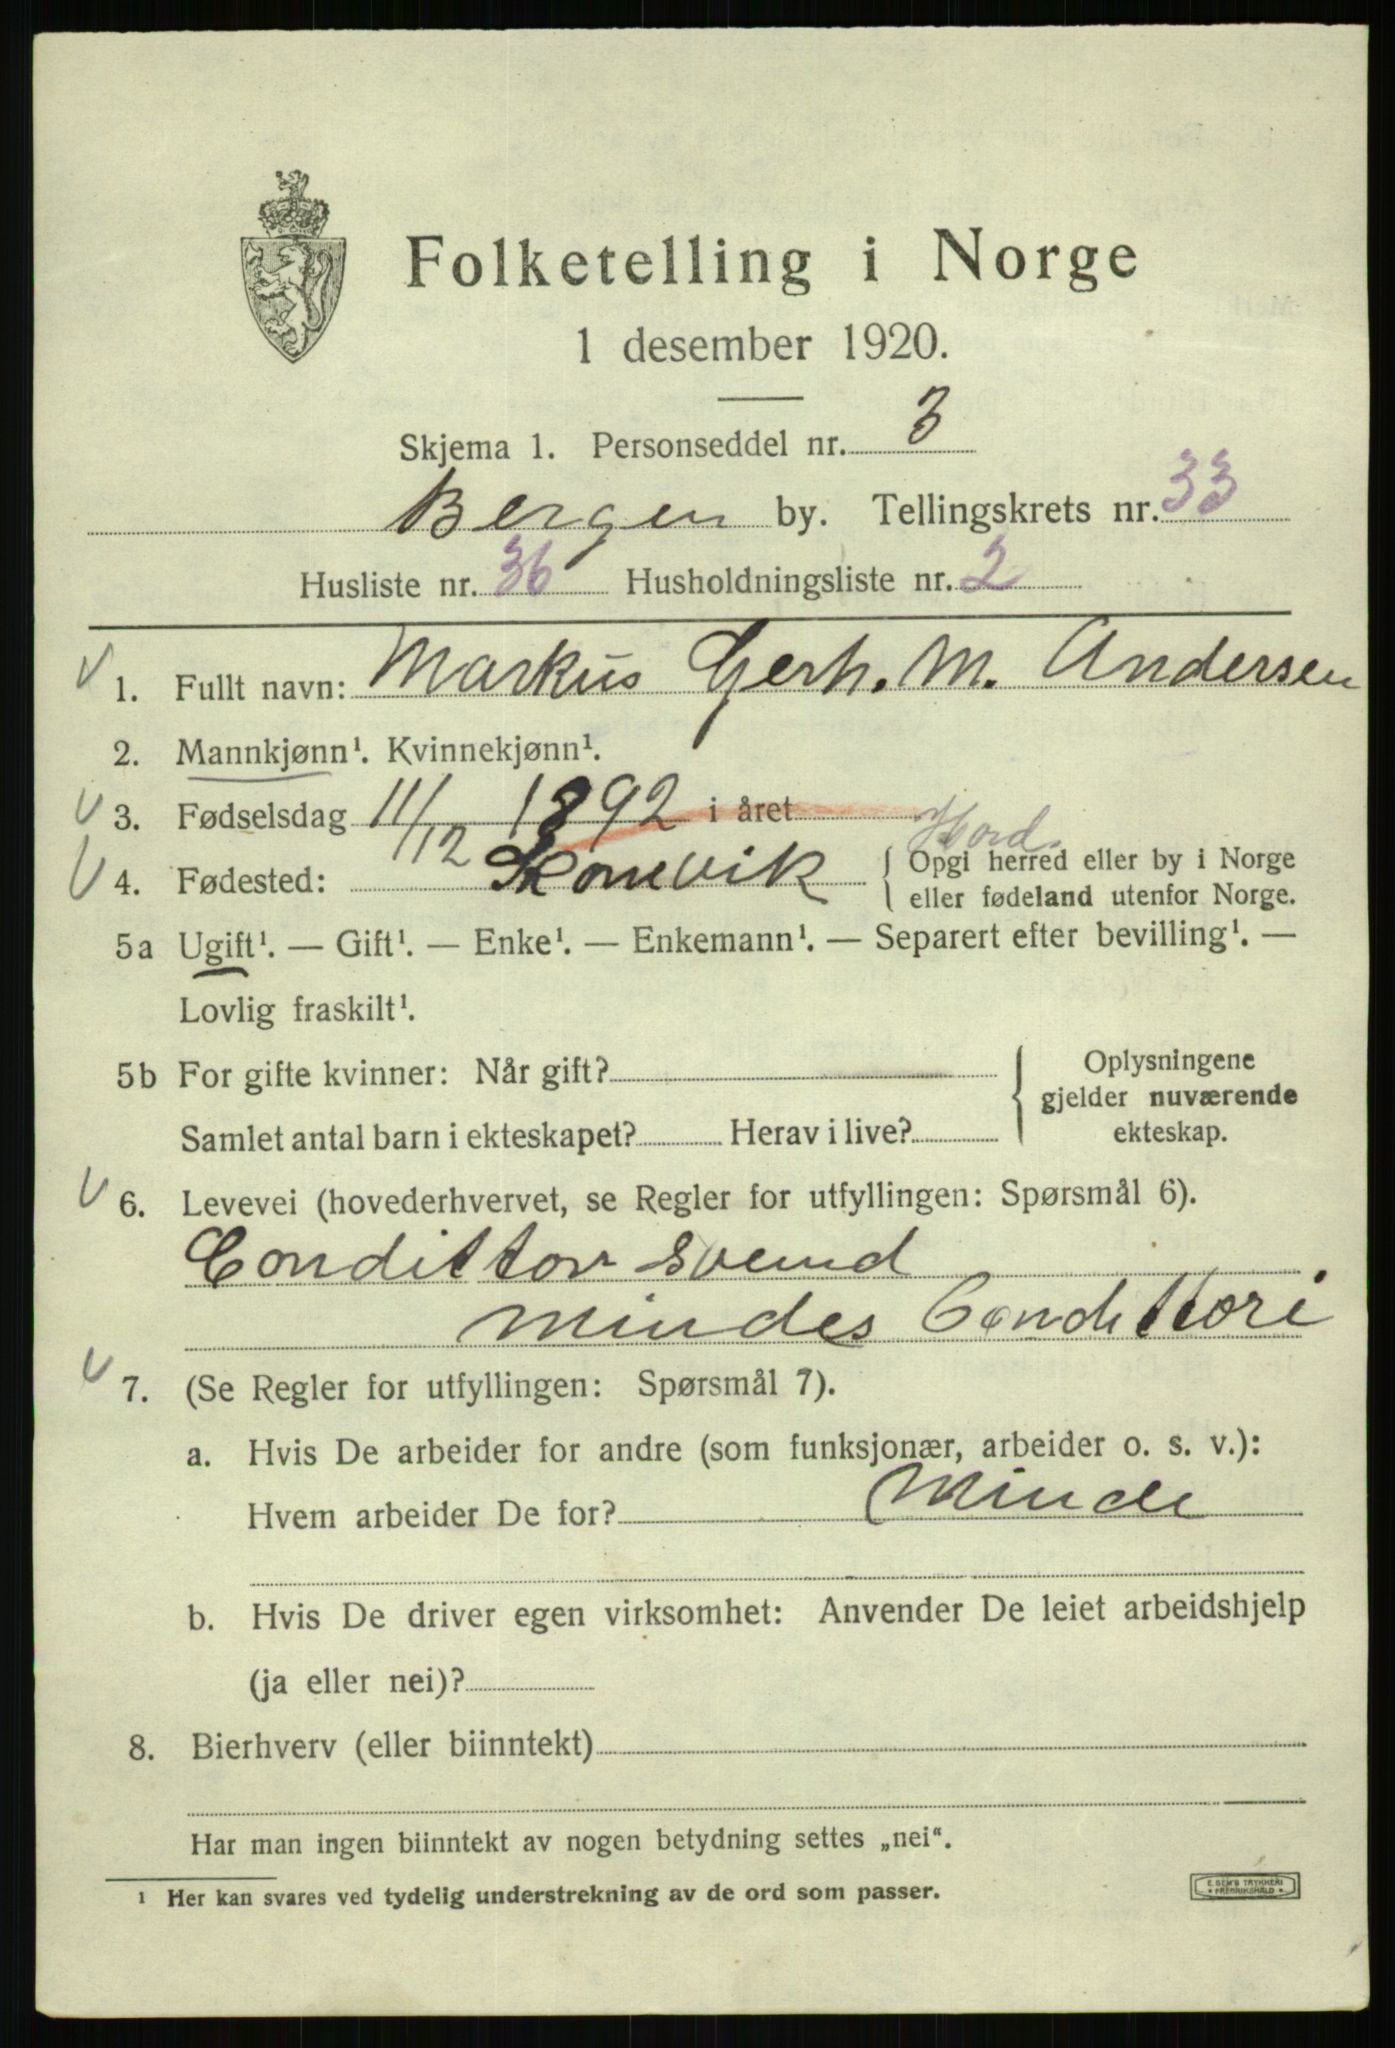 Folketelling i Norge
1 desember 1920.
Skjema 1. Personseddel nr. 3
Bergen by. Tellingskrets nr. 33
Husliste nr. 36 Husholdningsliste nr. 2
1. Fullt navn: Markus Gerh. M. Andersen
2. Mannkjønn¹. Kvinnekjønn¹.
3. Fødselsdag 11/12 1892 i året
Hord.
4. Fødested: Skonevik { Opgi herred eller by i Norge
eller fødeland utenfor Norge.
5a Ugift¹. — Gift¹. — Enke¹. — Enkemann¹. — Separert efter bevilling¹. —
Lovlig fraskilt¹.
5b For gifte kvinner: Når gift? { Oplysningene
gjelder nuværende
Samlet antal barn i ekteskapet? Herav i live? ekteskap.
6. Levevei (hovederhvervet, se Regler for utfyllingen: Spørsmål 6).
Condittor svend
Mindes Condittori
7. (Se Regler for utfyllingen: Spørsmål 7).
a. Hvis De arbeider for andre (som funksjonær, arbeider o. s. v.):
Hvem arbeider De for? Minde
b. Hvis De driver egen virksomhet: Anvender De leiet arbeidshjelp
(ja eller nei)?
8. Bierhverv (eller biinntekt)
Har man ingen biinntekt av nogen betydning settes „nei".
¹ Her kan svares ved tydelig understrekning av de ord som passer.
E. SEM'S TRYKKERI
FREDRIKSHALD